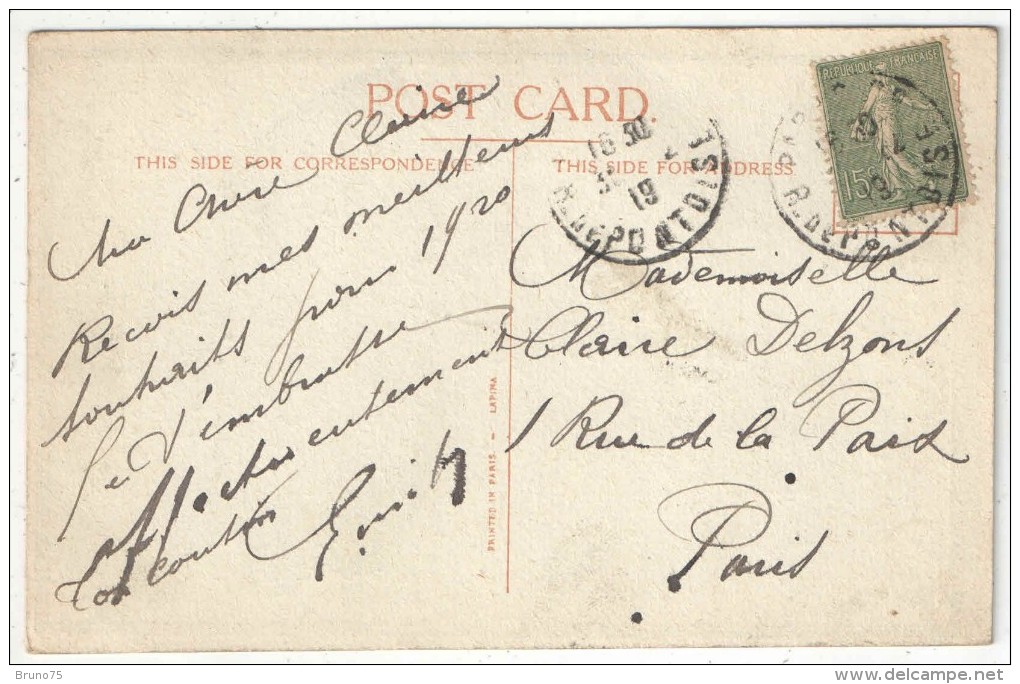 POST CARD.
THIS SIDE FOR CORRESPONDENCE
THIS SIDE FOR ADDRESS
REPUBLIQUE FRANÇAISE
15
16 30
19
R. DE PONTOISE
R. DE PONTOISE
Ma Chère Claire
Recois mes meilleurs
souhaits pour 1920
Je t'embrasse
affectueusement
Ton cousin
PRINTED IN PARIS. - LAPINA
Mademoiselle
Claire Delzons
1 Rue de la Paix
Paris
Bruno75
delcampe.net